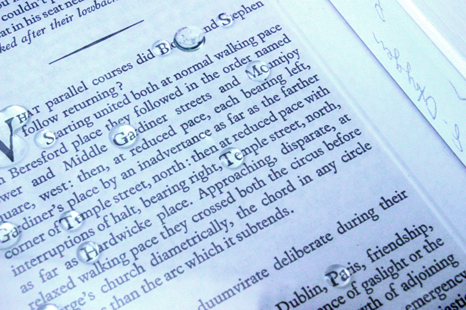 couldn't p
at in his seat nea
ked after their lowback
HAT parallel courses did Bloom and Stephen
follow returning?
Starting united both at normal walking pace
Beresford place they followed in the order named
wer and Middle Gardiner streets and Mountjoy
quare, west: then, at reduced pace, each bearing left,
Gardiner's place by an inadvertance as far as the farther
corner of Temple street, north: then at reduced pace with
interruptions of halt, bearing right, Temple street, north,
as far as Hardwicke place. Approaching, disparate, at
relaxed walking pace they crossed both the circus before
rge's church diametrically, the chord in any circle
than the arc which it subtends.
duumvirate deliberate during their
Dublin, Paris, friendship,
ence of gaslight or the
th of adjoining
emergency